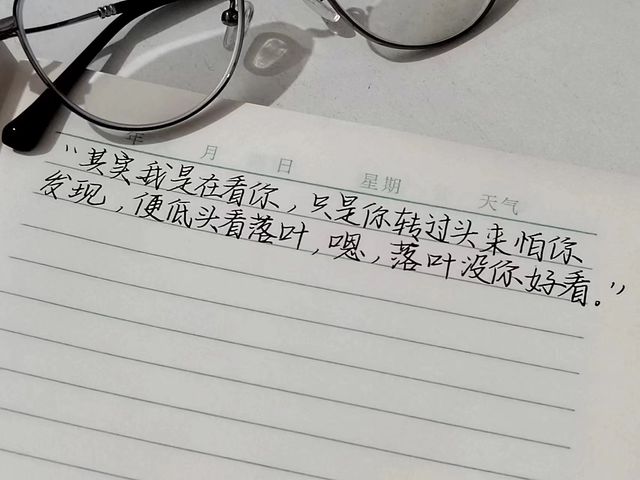 年 月 日 星期 天气
“其实我是在看你，只是你转过头来怕你
发现，便低头看落叶，嗯，落叶没你好看。”